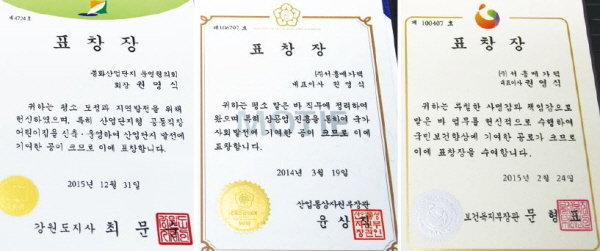 제4724호
표창장
동화산업단지 운영협의회
회장 권영식
귀하는 평소 도정과 지역발전을 위해
헌신하였으며, 특히 산업단지형 공동직장
어린이집을 신축·운영하여 산업단지 발전에
기여한 공이 크므로 이에 표창합니다.
2015년 12월 31일
강원도지사 최문순
제 106707 호
표창장
(주)서흥메가텍
대표이사 권영식
귀하는 평소 맡은 바 직무에 정려하여
왔으며 특히 상공업 진흥을 통하여 국가
사회발전에 기여한 공이 크므로 이에
표창합니다.
MOTIE
2014년 3월 19일
산업통상자원부장관
윤상직
제 100407 호
표창장
(주)서흥메가텍
대표이사 권영식
귀하는 투철한 사명감과 책임감으로
맡은 바 업무를 헌신적으로 수행하여
국민보건향상에 기여한 공로가 크므로
이에 표창장을 수여합니다.
2015년 2월 24일
보건복지부장관 문형표